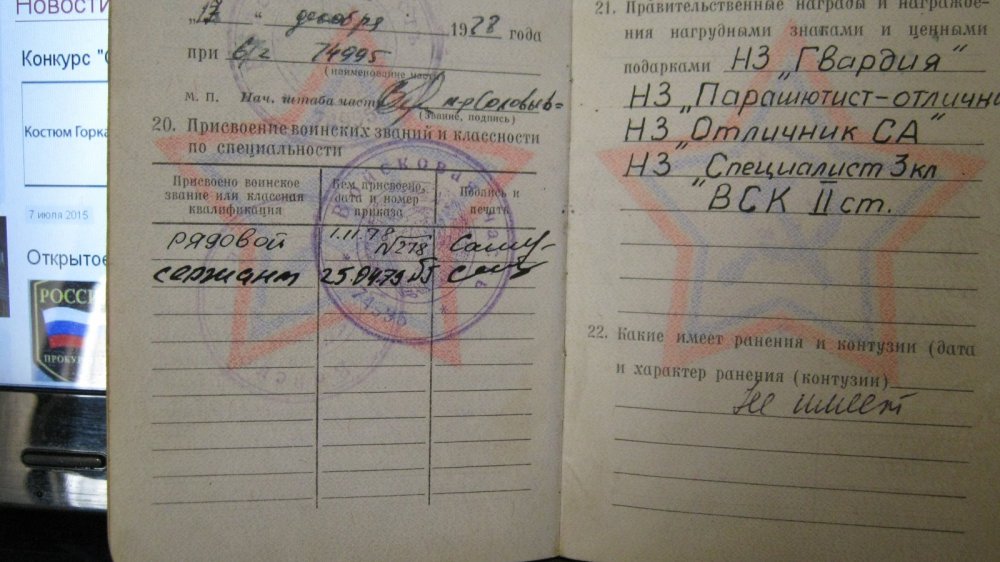 Новости
Конкурс "С
Костюм Горка
7 июля 2015
Открытое
РОССИ
ПРОКУ
„17“ декабря 1978 года
при в/ч 74995
(наименование части)
М. П. Нач. штаба части м-р Соловьев
(звание, подпись)
20. Присвоение воинских званий и классности
по специальности
Присвоено воинское звание или классная квалификация
Кем присвоено, дата и номер приказа
Подпись и печать
рядовой 1.11.78 №278
сержант 25.04.79
Войсковая часть
21. Правительственные награды и награжде-
ния нагрудными знаками и ценными
подарками НЗ „Гвардия“
НЗ „Парашютист-отлични
НЗ „Отличник СА“
НЗ „Специалист 3кл
"ВСК II ст.
22. Какие имеет ранения и контузии (дата
и характер ранения (контузии)
Не имеет